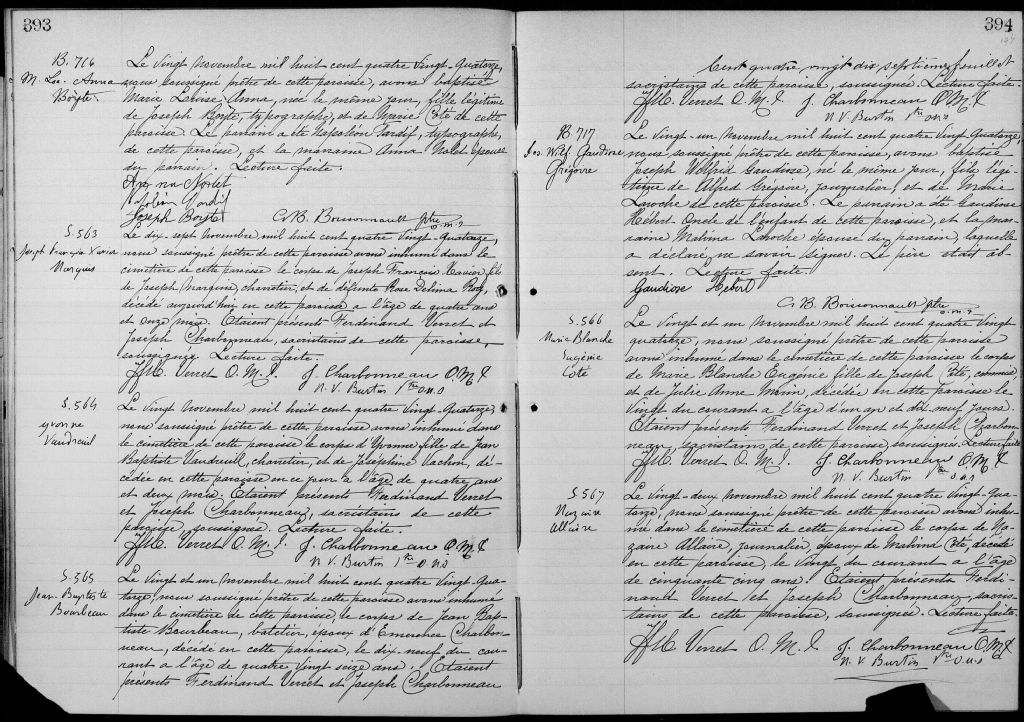 393
B. 716
M. Ls. Anna
Boÿte
Le vingt novembre mil huit cent quatre vingt-quatorze,
nous soussigné prêtre de cette paroisse, avons baptisé
Marie Louise Anna, née le même jour, fille légitime
de Joseph Boÿte, typographe, et de Marie Côté de cette
paroisse. Le parrain a été Napoléon Tardif, typographe,
de cette paroisse, et la marraine Anna Nolet épouse
du parrain. Lecture faite.
Anna Nolet
Napoléon Tardif
Joseph Boÿte
C. B. Boissonnault ptre
o.m.i
S. 563
Joseph François Xavier
Marquis
Le dix sept novembre mil huit cent quatre vingt-quatorze,
nous soussigné prêtre de cette paroisse avons inhumé dans le
cimetière de cette paroisse le corps de Joseph François Xavier fils
de Joseph Marquis, charretier, et de défunte Rose Délima Roy,
décédé aujourd'hui en cette paroisse a l'âge de quatre ans
et onze mois. Etaient présents Ferdinand Verret et
Joseph Charbonneau, sacristains de cette paroisse,
soussignés. Lecture faite.
FfC. Verret O. M. I. J. Charbonneau O. M. I
N. V. Burtin Ptre O.M.I
S. 564
Yvonne
Vaudreuil
Le vingt novembre mil huit cent quatre vingt-quatorze
nous soussigné prêtre de cette paroisse avons inhumé dans
le cimetière de cette paroisse le corps d'Yvonne fille de Jean
Baptiste Vaudreuil, charretier, et de Joséphine Vachon, dé-
cédée en cette paroisse en ce jour à l'âge de quatre ans
et deux mois. Etaient présents Ferdinand Verret
et Joseph Charbonneau, sacristains de cette
paroisse, soussignés. Lecture faite.
FfC. Verret O. M. I. J. Charbonneau O. M. I
N. V. Burtin Ptre O.M.I
S. 565
Jean-Baptiste
Bourbeau
Le vingt et un novembre mil huit cent quatre vingt-qua-
torze, nous soussigné prêtre de cette paroisse avons inhumé
dans le cimetière de cette paroisse, le corps de Jean Bap-
tiste Bourbeau, batelier, époux d'Emerence Charbon-
neau, décédé en cette paroisse, le dix neuf du cou-
rant a l'âge de quatre vingt seize ans. Etaient
présents Ferdinand Verret et Joseph Charbonneau
394
Cent quatre vingt dix septième feuillet
sacristains de cette paroisse, soussignés. Lecture faite.
FfC. Verret O. M. I J. Charbonneau O. M. I
N. V. Burtin Ptre O.M.I
B. 717
Jos. Wilf. Gaudiose
Grégoire
Le vingt-un novembre mil huit cent quatre vingt quatorze,
nous soussigné prêtre de cette paroisse, avons baptisé
Joseph Wilfrid Gaudiose, né le même jour, fils légi-
time de Alfred Grégoire, journalier, et de Marie
Laroche de cette paroisse. Le parrain a été Gaudiose
Hébert oncle de l'enfant de cette paroisse, et la mar-
raine Malvina Laroche épouse du parrain, laquelle
a déclaré ne savoir signer. Le père etait ab-
sent. Lecture faite.
Gaudiose Hebert
C. B. Boissonnault ptre
o.m.i
S. 566
Marie Blanche
Eugénie
Côté
Le vingt et un novembre mil huit cent quatre vingt
quatorze, nous soussigné prêtre de cette paroisse
avons inhumé dans le cimetière de cette paroisse le corps
de Marie Blanche Eugénie fille de Joseph Côté, commis,
et de Julie Anne Morin, décédée en cette paroisse le
vingt du courant a l'âge d'un an et dix neuf jours.
Etaient présents Ferdinand Verret et Joseph Charbon-
neau, sacristains de cette paroisse, soussignés. Lecture faite
FfC. Verret O. M. I. J. Charbonneau O. M. I
N. V. Burtin Ptre O.M.I
S. 567
Nazaire
Allaire
Le vingt-deux novembre mil huit cent quatre vingt-qua-
torze, nous soussigné prêtre de cette paroisse avons inhu-
mé dans le cimetière de cette paroisse le corps de Na-
zaire Allaire, journalier, époux de Malvina Côté, décédé
en cette paroisse, le vingt du courant a l'âge
de cinquante cinq ans. Etaient présents Ferdi-
nand Verret et Joseph Charbonneau, sacris-
tains de cette paroisse, soussignés. Lecture faite
FfC. Verret O. M. I J. Charbonneau O. M. I
N. V. Burtin Ptre O.M.I